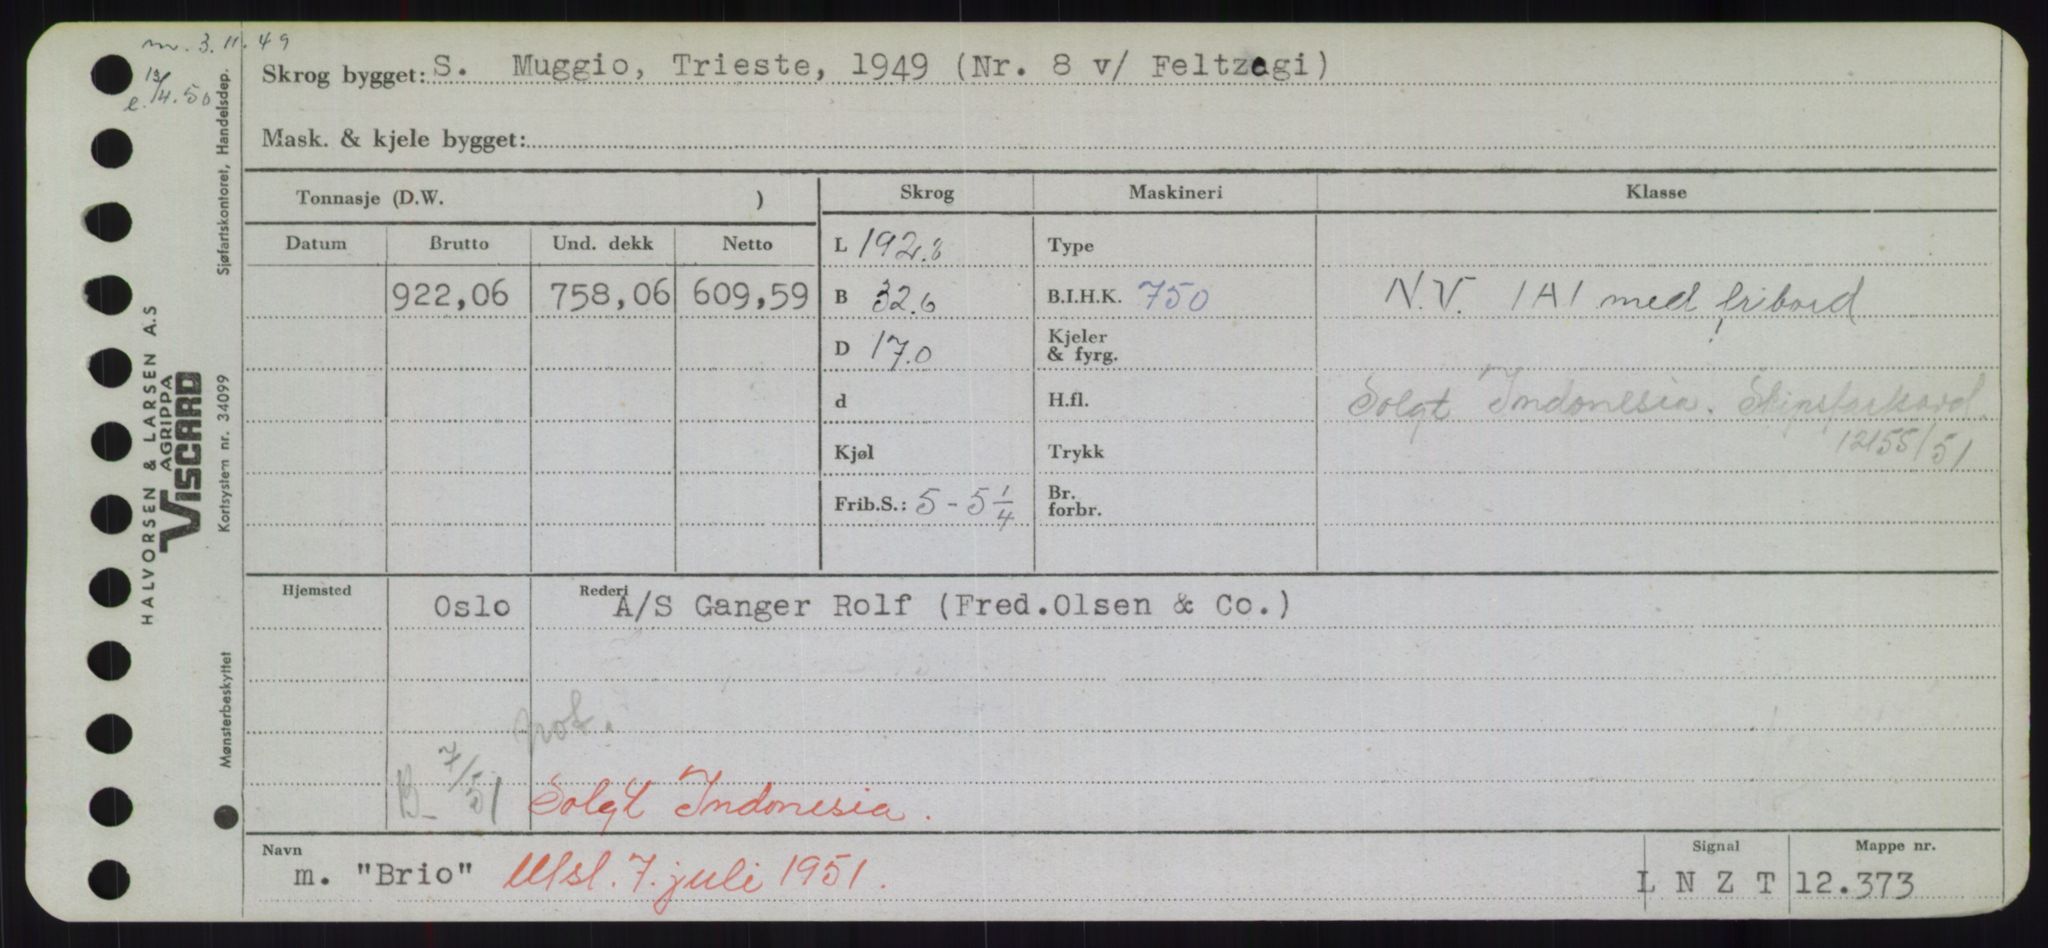 m. 3.11.49
e. 13/4.50
Skrog bygget: S. Muggio, Trieste, 1949 (Nr. 8 v/ Feltzegi)
Mask. & kjele bygget:
Tonnasje (D.W. )
Skrog Maskineri Klasse
Datum Brutto Und. dekk Netto
L 192.8 Type
922,06 758,06 609,59 B 32.6 B.I.H.K. 750 N.V. 1A1 med fribord
D 17.0 Kjeler & fyrg.
d H.fl. Solgt Indonesia. Skipsfarkard.
12155/51
Kjøl Trykk
Frib.S.: 5 - 5 1/4 Br. forbr.
Hjemsted Oslo Rederi A/S Ganger Rolf (Fred.Olsen & Co.)
not.
B- 7/51 Solgt Indonesia.
Navn m. "Brio" Utsl. 7. juli 1951. Signal L N Z T Mappe nr. 12.373
HALVORSEN & LARSEN A.S
AGRIPPA
VISCARD
Mønsterbeskyttet Kortsystem nr. 34099 Sjøfartskontoret, Handelsdep.